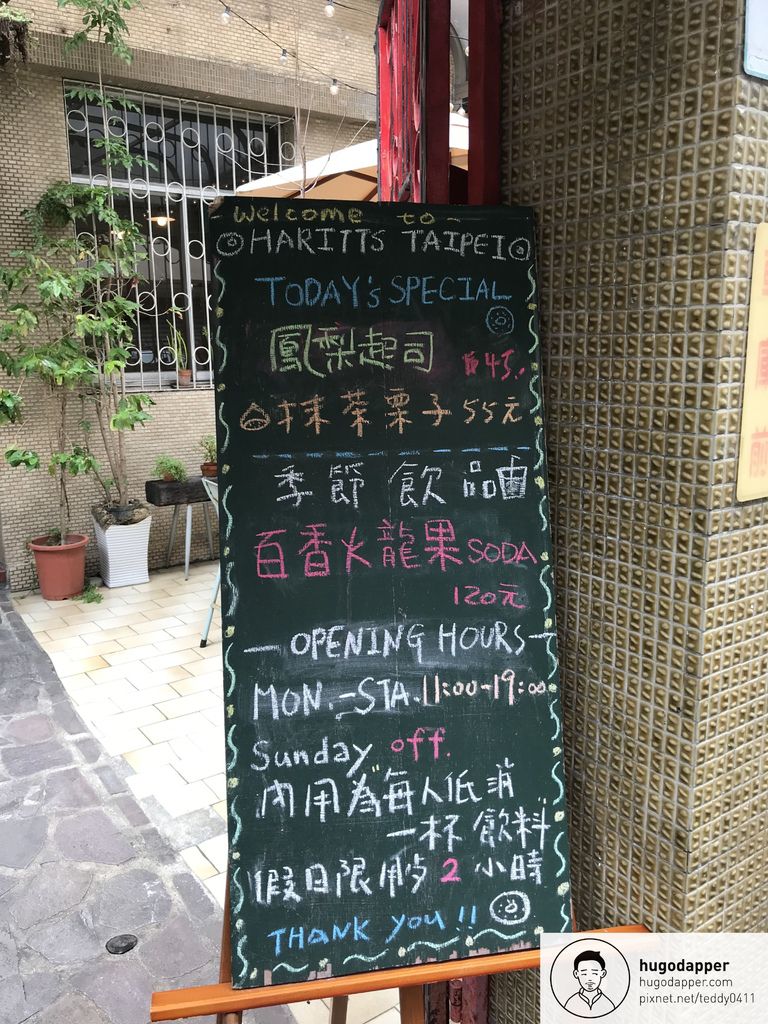 -Welcome to-
HARITTS TAIPEI
TODAY'S SPECIAL
鳳梨起司 $45.
抹茶栗子 55元
季節飲品
百香火龍果 SODA
120元
— OPENING HOURS —
MON.-STA. 11:00-19:00
Sunday off.
內用為每人低消
一杯飲料
假日限用 2 小時
THANK YOU!!
hugodapper
hugodapper.com
pixnet.net/teddy0411